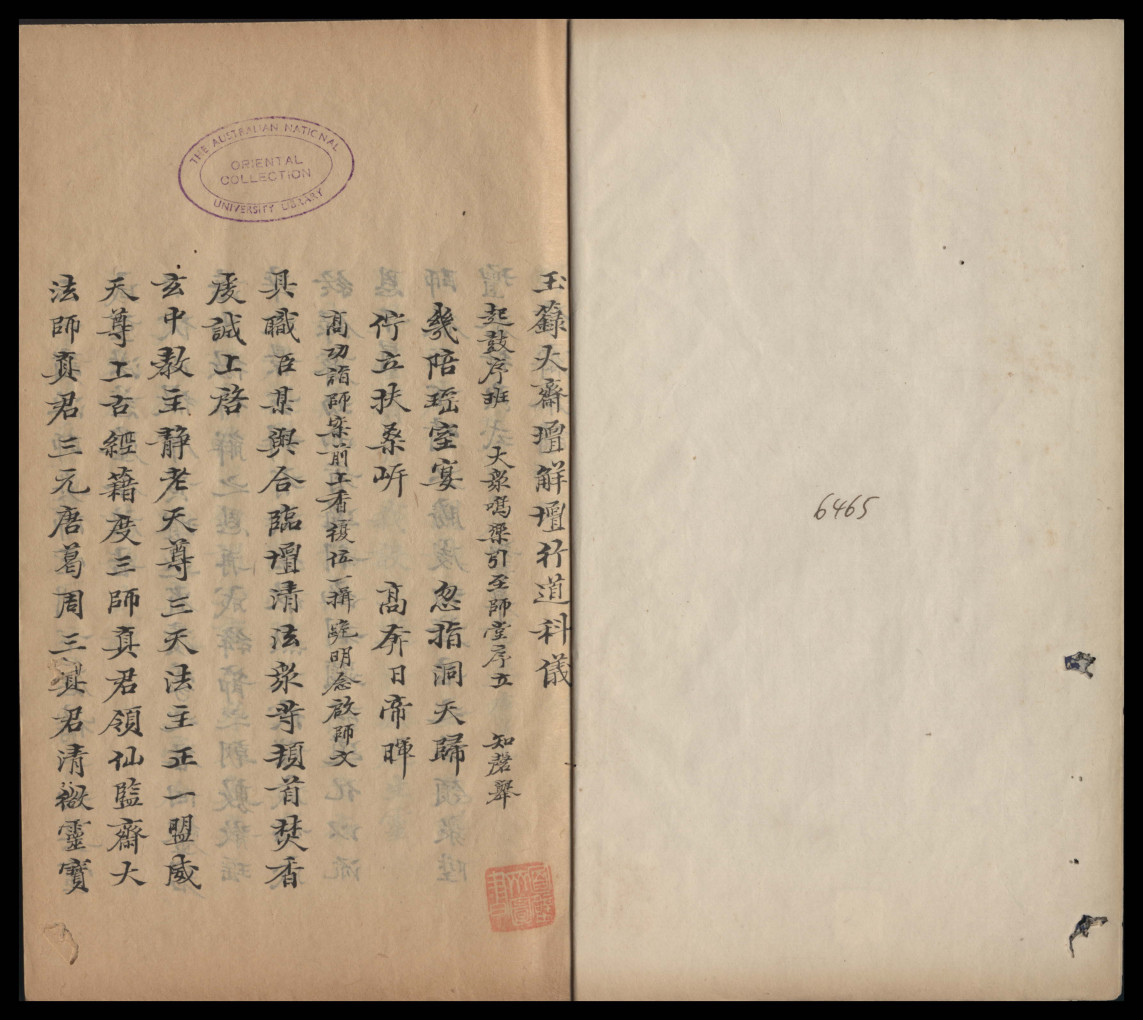 6465
玉籙大齋壇解壇行道科儀
起鼓序班 大衆鳴樂引至師堂序立 知磬舉
幾陪瑶室宴 忽指洞天歸
佇立扶桑㟁 高奔日帝暉
高功詣師案前上香復位一揖 跪明念啟師文
具職臣某與合臨壇清法衆等頓首焚香
虔誠上啓
玄中教主静老天尊三天法主正一盟威
天尊上古經籍度三師真君領仙監齋大
法師真君三元唐葛周三真君清微靈寶
THE AUSTRALIAN NATIONAL
ORIENTAL
COLLECTION
UNIVERSITY LIBRARY